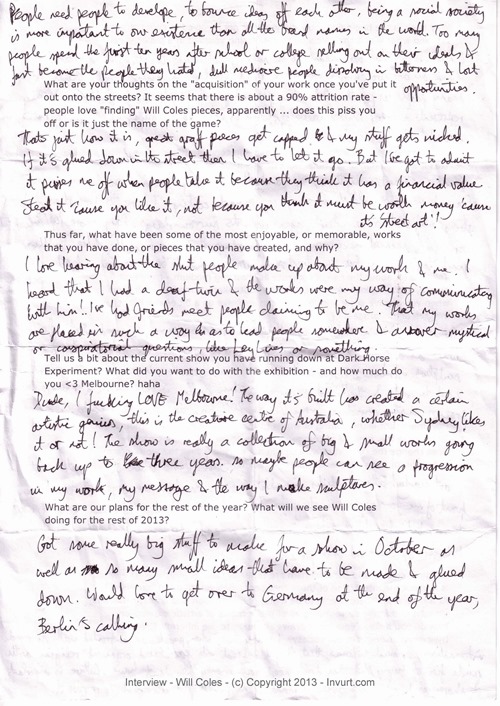 People need people to develop, to bounce ideas of each other, being a social society
is more important to our existence than all the brand names in the world. Too many
people spend the first ten years after school or college selling out on their ideals &
just become the people they hated, dull mediocre people dissolving in bitterness & lost
opportunities.
What are your thoughts on the "acquisition" of your work once you've put it
out onto the streets? It seems that there is about a 90% attrition rate -
people love "finding" Will Coles pieces, apparently ... does this piss you
off or is it just the name of the game?
Thats just how it is, great graff pieces get capped & my stuff gets nicked.
If it's glued down in the street then I have to let it go. But I've got to admit
it pisses me off when people take it because they think it has a financial value
Steal it 'cause you like it, not because you think it must be worth money 'cause
it's 'street art'!
Thus far, what have been some of the most enjoyable, or memorable, works
that you have done, or pieces that you have created, and why?
I love hearing about the shit people make up about my work & me. I
heard that I had a deaf twin & the works were my way of communicating
with him!. I've had friends meet people claiming to be me. That my works
are placed in such a way as to lead people somewhere & answer mystical
or conspiratorial questions, like Ley Lines or something.
Tell us a bit about the current show you have running down at Dark Horse
Experiment? What did you want to do with the exhibition - and how much do
you <3 Melbourne? haha
Dude, I fucking LOVE Melbourne! The way it's built has created a certain
artistic genius, this is the creative centre of Australia, whether Sydney likes
it or not! The show is really a collection of big & small works going
back up to three years. so maybe people can see a progression
in my work, my message & the way I make sculptures.
What are our plans for the rest of the year? What will we see Will Coles
doing for the rest of 2013?
Got some really big stuff to make for a show in October as
well as so many small ideas that have to be made & glued
down. Would love to get over to Germany at the end of the year,
Berlin's calling.
Interview - Will Coles - (c) Copyright 2013 - Invurt.com